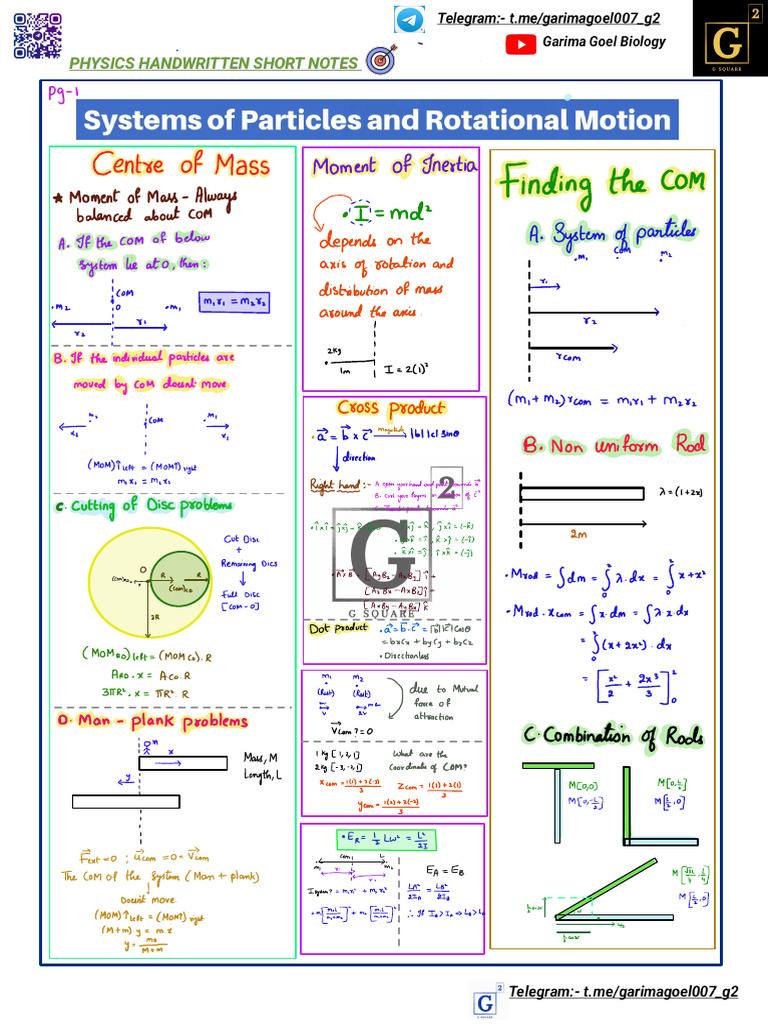 Telegram:- t.me/garimagoel007_g2
Garima Goel Biology
2
G
G SQUARE
PHYSICS HANDWRITTEN SHORT NOTES
Pg-1
Systems of Particles and Rotational Motion
Centre of Mass
★ Moment of Mass - Always
balanced about COM
A. If the COM of below
system lie at O, then:
COM
m₂ O m₁
m₁r₁ = m₂r₂
r₂ r₁
B. If the individual particles are
moved by COM doesnt move
m₂ COM m₁
x₂ x₁
(MOM)↑left = (MOM↑)right
m₂x₂ = m₁x₁
C. Cutting of Disc problems
Cut Disc
+
Remaining Dics
↓
Full Disc
[COM - O]
O
R R
2R
(MOM RD) left = (MOM CD). R
ARD . x = ACD . R
3πR² . x = πR² . R
D. Man - plank problems
m
x
y
Mass, M
Length, L
Fext = 0 ; ucom = 0 = Vcom
The COM of the System (Man + plank)
↓
Doesnt move
(MOM)↑left = (MOM↑) right
(M+m) y = m x
y = mx/M+m
Moment of Inertia
• I = md²
depends on the
axis of rotation and
distribution of mass
around the axis.
2kg
1m
I = 2(1)²
Cross product
• a = b × c magnitude |b| |c| sinθ
direction
Right hand :-
2
G
G SQUARE
Dot product
• a = b . c = |b| |c| cosθ
= bxCx + byCy + bzCz
• Directionless
m₁ m₂
(Rest) (Rest)
due to Mutual
force of
attraction
Vcom ? = 0
1 kg [1, 2, 1]
2kg [-3, -2, 1]
What are the
Coordinate of COM?
xcom = 1(1) + 2(-3)/3
zcom = 1(1) + 2(1)/3
ycom = 1(2) + 2(-2)/3
• ER = 1/2 Iω² = L²/2I
com
m₁ m₂
r₁ r₂
I system? = m₁r₁² + m₂r₂²
EA = EB
LA²/2IA = LB²/2IB
∴ If IB > IA ⇒ LB > LA
Finding the COM
A. System of particles
m₁ COM m₂
r₁
r₂
rcom
(m₁ + m₂) rcom = m₁r₁ + m₂r₂
B. Non uniform Rod
λ = (1+2x)
2m
• Mrod = ∫dm = ∫₀² λ.dx = ∫₀² x + x²
• Mrod . xcom = ∫x.dm = ∫λx.dx
= ∫₀² (x + 2x²) . dx
= [x²/2 + 2x³/3]₀²
C. Combination of Rods
M[0,0]
M[0,-L/2]
M[0,L/2]
M[L/2,0]
M[√3L/4, L/4]
M[L/2,0]
2
G
G SQUARE
Telegram:- t.me/garimagoel007_g2